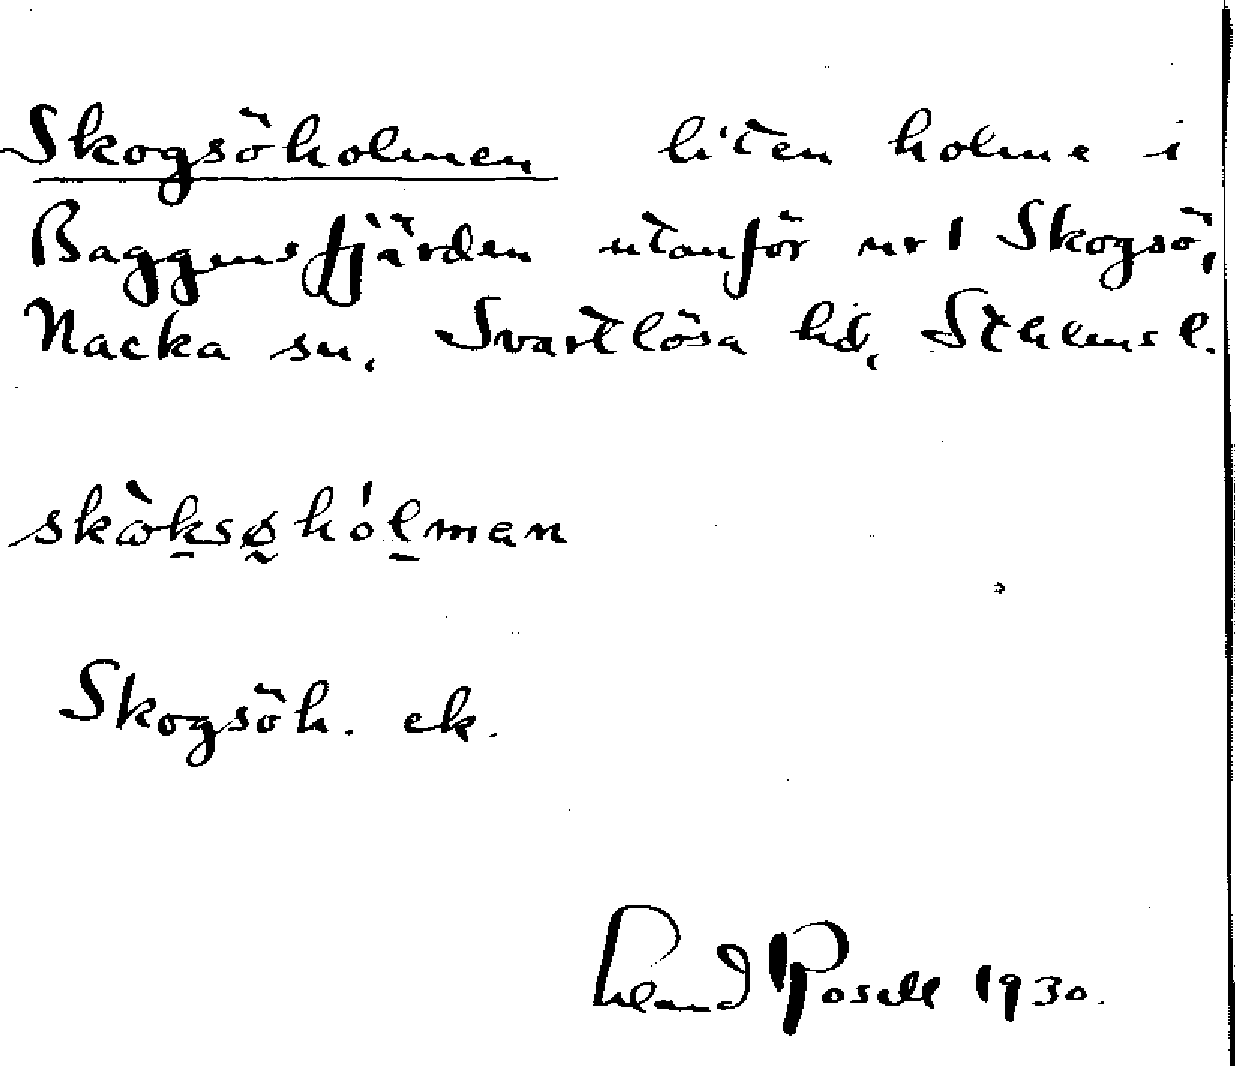 Skogsöholmen liten holme i
Baggensfjärden utanför nr 1 Skogsö,
Nacka sn, Svartlösa hd, Sthlms l.
skɷ̀ksøhólman
Skogsöh. ek.
Rosell 1930.